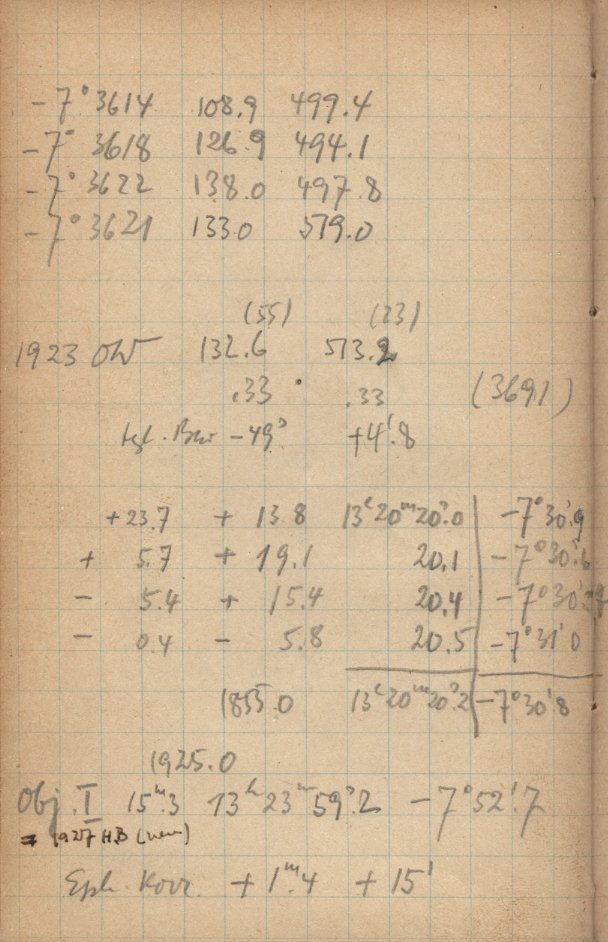 -7° 3614 108.9 499.4
-7° 3618 126.9 494.1
-7° 3622 138.0 497.8
-7° 3621 133.0 519.0
(55) (23)
1923 OW 132.6 513.2
.33 .33 (3691)
tgl. Bew -49ˢ +4'.8
+23.7 + 13.8 13ʰ20ᵐ20ˢ.0 -7°30'.9
+ 5.7 + 19.1 20.1 -7°30'.6
- 5.4 + 15.4 20.4 -7°30'
- 0.4 - 5.8 20.5 -7°31'0
1855.0 13ʰ20ᵐ20ˢ.2 -7°30'8
1925.0
Obj. I 15ᵐ.3 13ʰ23ᵐ59ˢ.2 -7°52'.7
= 1927 HB (neu)
Eph. Korr. +1ᵐ.4 +15'